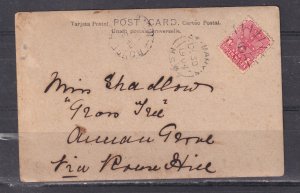 Tarjeta Postal. POST CARD. Cartão Postal.
Union postale Universelle.
Miss Shadlow
"Grove Tree"
Annan Grove
Via Rouse Hill